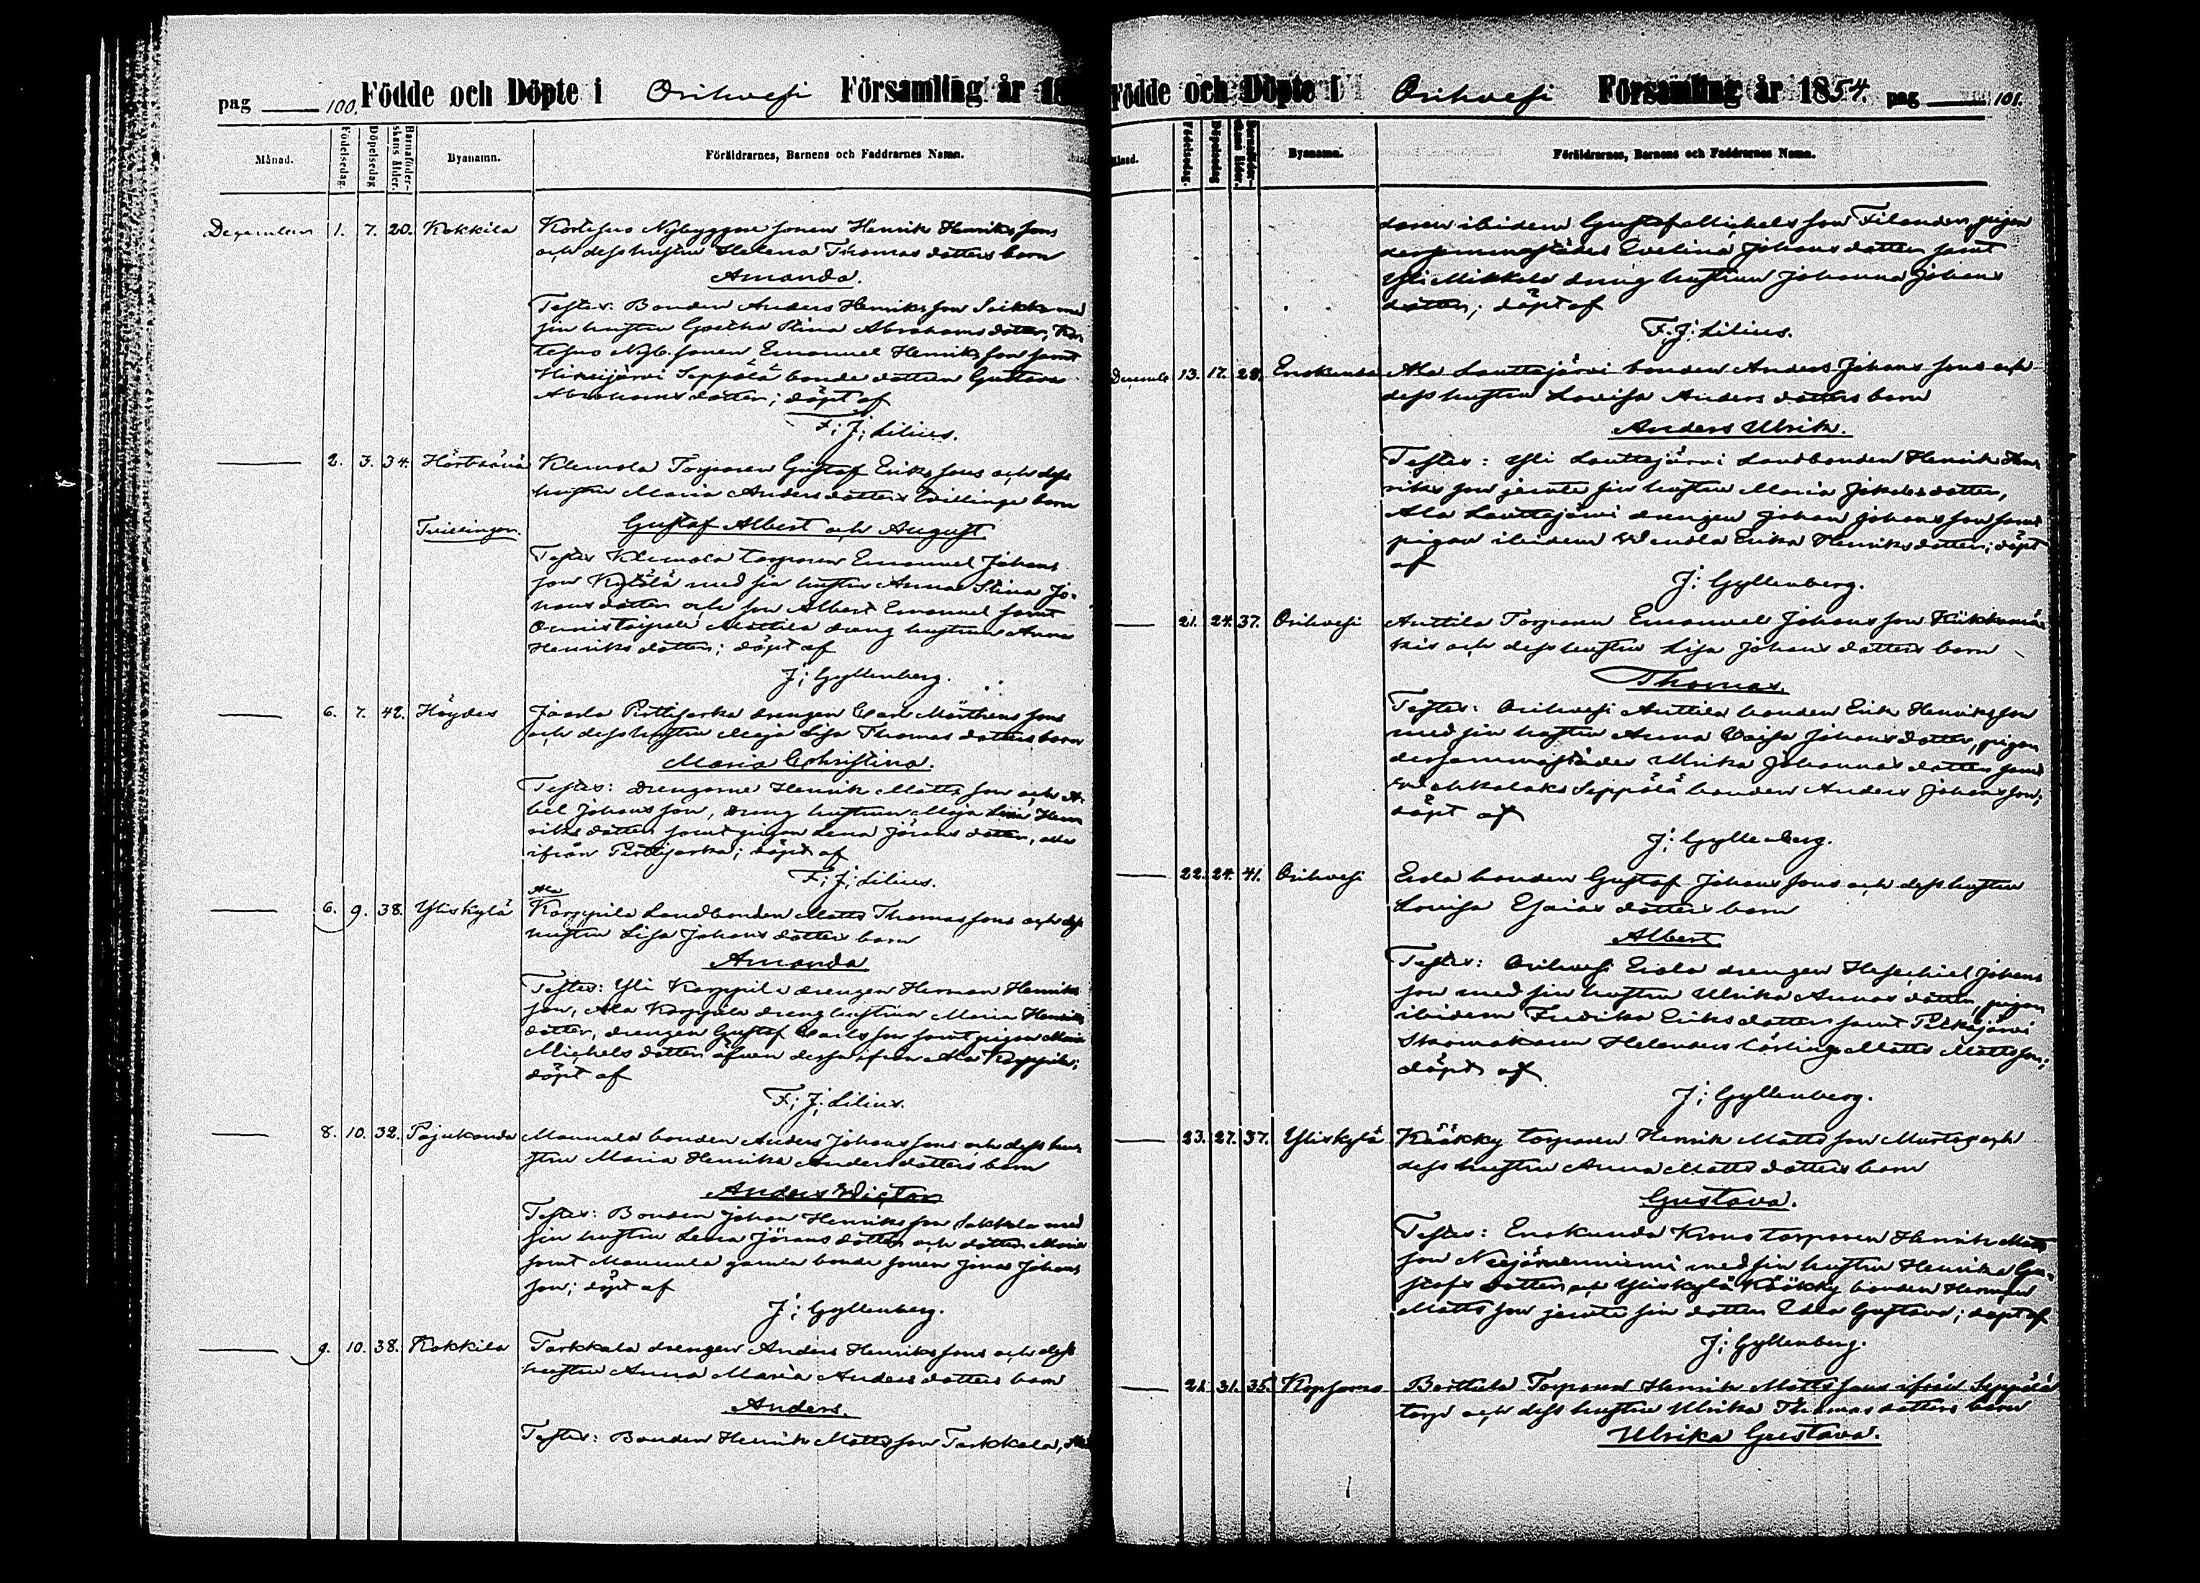 pag 100. Födde och Döpte i Orihvesi Församling år 18
Månad. Födelsedag. Döpelsedag Barnaföderskans ålder. Bynamn. Föräldrarnes, Barnens och Faddrarnes Namn.
December 1. 7. 20. Kokkila Kortesuo Nybyggare sonen Henrik Henriks sons
och dess hustru Helena Thomas dotters barn
Amanda.
Testes: Bonden Anders Henriks son Seikku med
sin hustru Gretha Stina Abrahams dotter, Kor
tesuo Nyb. sonen Emanuel Henriks son samt
Hirsijärvi Seppälä bonde dottern Gustava
Abrahams dotter; döpt af
F; J; Lilius.
2. 3. 34. Klemola Torparen Gustaf Eriks sons och dess
hustru Maria Anders dotters Tvillinge barn
Tvillingar. Gustaf Albert och August
Testes Klemola torparen Emanuel Johans
son Kylälä med sin hustru Anna Stina Jo-
hans dotter och son Albert Emanuel samt
Onnistaipale Mattila dreng hustrun Anna
Henriks dotter; döpt af
J; Gyllenberg.
6. 7. 42. Höydes Jaarla Pirttisarka drengen Carl Mårthens sons
och dess hustru Maja Lisa Thomas dotters barn
Maria Christina.
Testes: drengarne Henrik Matts son och A-
bel Johans son, dreng hustrun Maja Lisa Hen
riks dotter samt pigan Lena Jörans dotter, alla
ifrån Pirttisarka; döpt af
F; J; Lilius.
Ala
6. 9. 38. Yliskylä Karppila Landbonden Matts Thomas sons och dess
hustru Lisa Johans dotters barn
Amanda
Testes: Yli Karppila drengen Herman Henriks
son, Ala Karppila dreng hustrun Maria Henriks
dotter, drengen Gustaf Carls son samt pigan Maria
Michels dotter äfven dessa ifrån Ala Karppila;
döpt af
F; J; Lilius.
8. 10. 32. Pajukanda Mannala bonden Anders Johans sons och dess hu-
stru Maria Henrika Anders dotters barn
Anders Victor
Testes: Bonden Johan Henriks son Sakkala med
sin hustru Lena Jörans dotter och dotter Maria
samt Mannala gamla bonde sonen Jonas Johans
son; döpt af
J; Gyllenberg.
9. 10. 38. Kokkila Tarkkala drengen Anders Henriks sons och dess
hustru Anna Maria Anders dotters barn
Anders.
Testes: Bonden Henrik Matts son Tarkkala,
Födde och Döpte i Orihvesi Församling år 1854. pag 101.
Månad. Födelsedag. Döpelsedag Barnaföderskans ålder. Bynamn. Föräldrarnes, Barnens och Faddrarnes Namn.
daren ibidem Gustaf Michels son Filander, pigan
dersammastädes Evelina Johans dotter samt
Yli Mikkola dreng hustrun Johanna Johans
dotter; döpt af
F. J; Lilius.
December 13. 17. 28. Enokunda Ala Lauttajärvi bonden Anders Johans sons och
dess hustru Lovisa Anders dotters barn
Anders Ulrik.
Testes: Yli Lauttajärvi Landbonden Henrik Hen
riks son jemte sin hustru Maria Jakobs dotter,
Ala Lauttajärvi drengen Johan Johans son samt
pigan ibidem Wendla Erika Henriks dotter; döpt
af
J; Gyllenberg.
21. 24. 37. Orihvesi Anttila Torparen Emanuel Johans son Kükkamä
kis och dess hustru Lisa Johans dotters barn
Thomas.
Testes: Orihvesi Anttila bonden Erik Henriks son
med sin hustru Anna Caisa Johans dotter, pigan
dersammastädes Ulrika Johannas dotter samt
Seppälä bonden Anders Johans son;
döpt af
J; Gyllenberg.
22. 24. 41. Orihvesi Erola bonden Gustaf Johans sons och dess hustru
Lovisa Esaias dotters barn
Albert
Testes: Orihvesi Erola drengen Hesechiel Johans
son med sin hustru Ulrika Annas dotter, pigan
ibidem Fredrika Eriks dotter samt Pitkäjärvi
Skomakaren Helenders lärling Matts Matts son;
döpt af
J; Gyllenberg.
23. 27. 37. Yliskylä Kääkky torparen Henrik Matts son Murtos och
dess hustru Anna Matts dotters barn
Gustava.
Testes: Enokunda Krono torparen Henrik Matts
son Neejärvenniemi med sin hustru Henrika Gu-
stafs dotter och Yliskylä Kääkky bonden Herman
Matts son jemte sin dotter Edla Gustava; döpt af
J; Gyllenberg.
21. 31. 35. Kopsamo Barttula Torparen Henrik Matts sons ifrån Seppälä
torp och dess hustru Ulrika Thomas dotters barn
Ulrika Gustava.